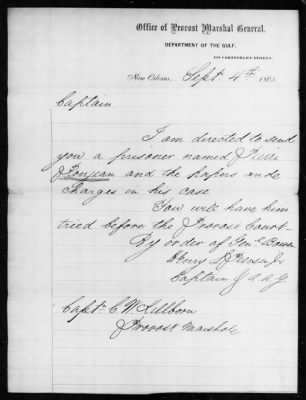 Office of Provost Marshal General.
DEPARTMENT OF THE GULF.
CARONDELET STREET.
New Orleans, Sept. 4th 186
Captain
I am directed to send
you a prisoner named Pierre
and the papers and
Charges in his case
You will have him
tried before the Provost Court
By order of Genl. Bowen
Henry Pierson Jr
Captain & A A G
Capt. C W Killborn
Provost Marshal